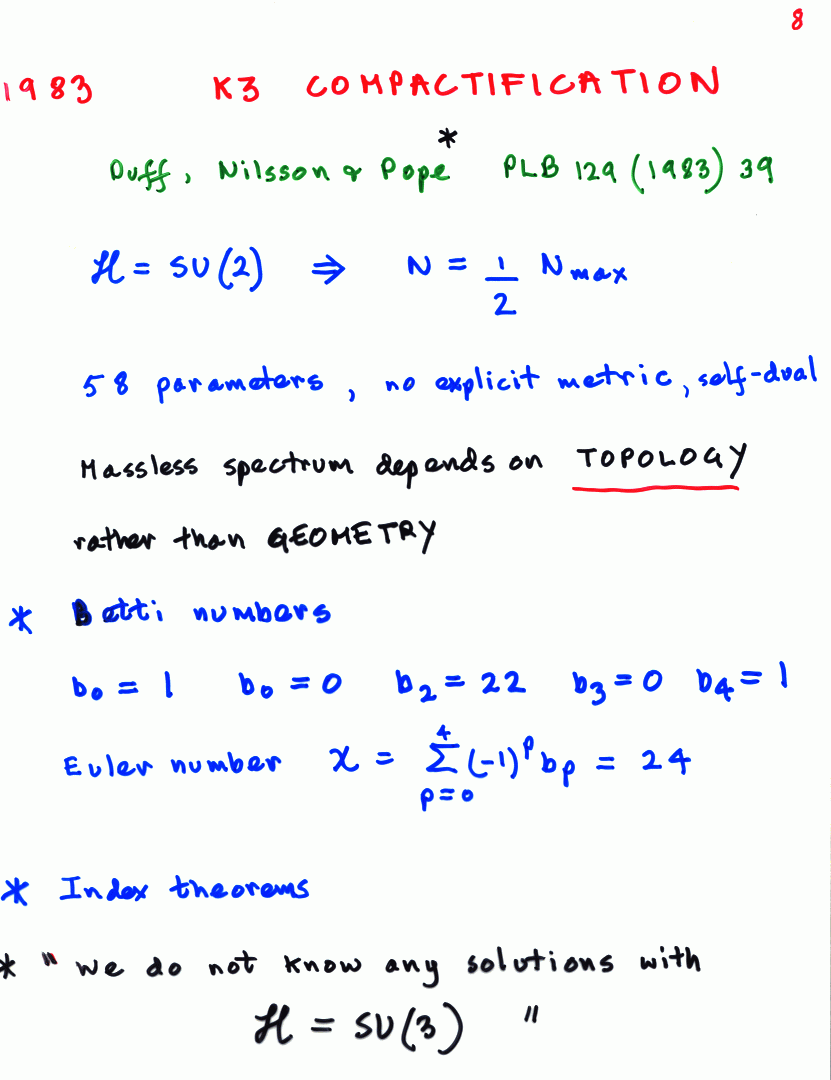 8
1983 K3 COMPACTIFICATION
Duff, Nilsson & Pope* PLB 129 (1983) 39
ℋ = SU(2) ⇒ N = 1/2 Nmax
58 parameters, no explicit metric, self-dual
Massless spectrum depends on TOPOLOGY
rather than GEOMETRY
* Betti numbers
b₀ = 1 b₀ = 0 b₂ = 22 b₃ = 0 b₄ = 1
Euler number χ = Σ_{p=0}^{4} (-1)^p b_p = 24
* Index theorems
* "we do not know any solutions with
ℋ = SU(3) "